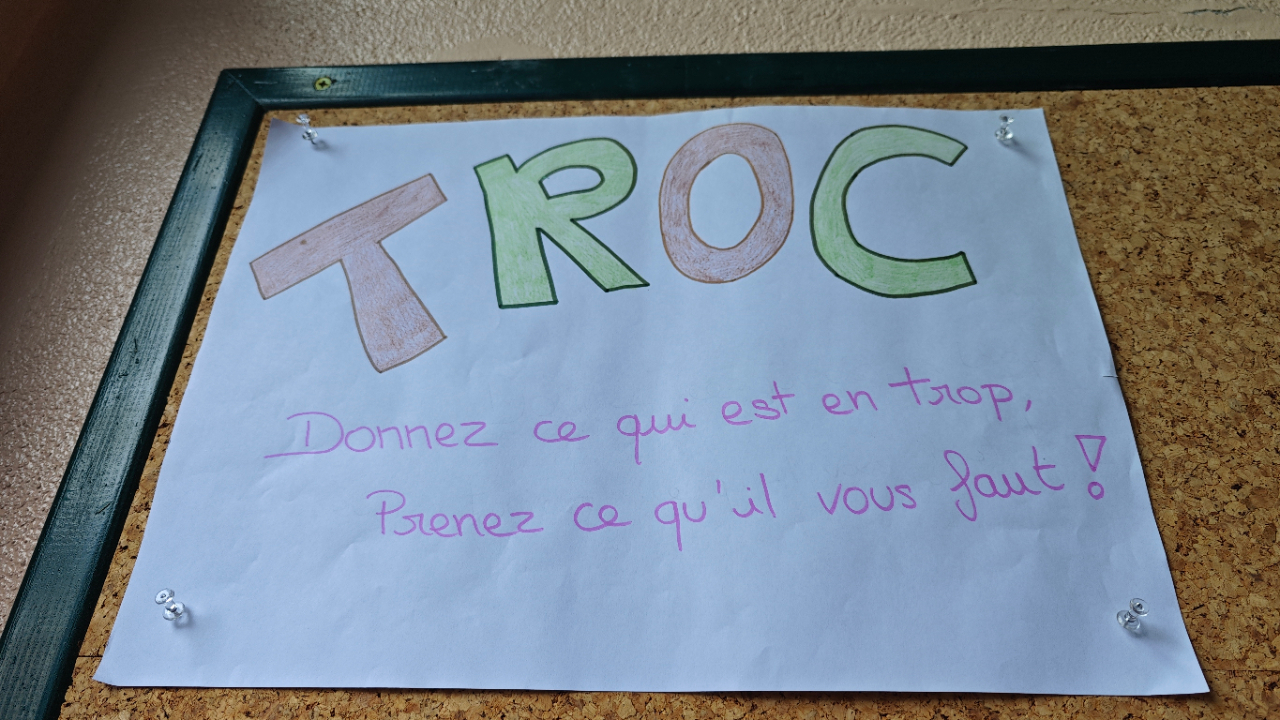 TROC
Donnez ce qui est en trop,
Prenez ce qu'il vous faut !